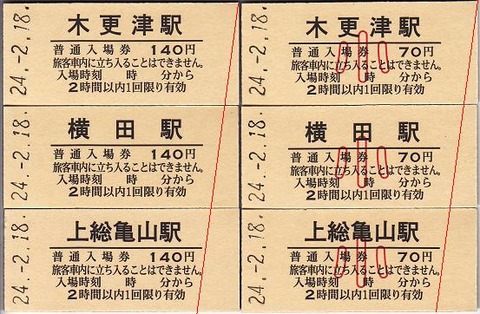 24.-2.18.
木更津駅
普通入場券 140円
旅客車内に立ち入ることはできません。
入場時刻 時 分から
2時間以内1回限り有効
24.-2.18.
木更津駅
普通入場券 70円
小
旅客車内に立ち入ることはできません。
入場時刻 時 分から
2時間以内1回限り有効
24.-2.18.
横田駅
普通入場券 140円
旅客車内に立ち入ることはできません。
入場時刻 時 分から
2時間以内1回限り有効
24.-2.18.
横田駅
普通入場券 70円
小
旅客車内に立ち入ることはできません。
入場時刻 時 分から
2時間以内1回限り有効
24.-2.18.
上総亀山駅
普通入場券 140円
旅客車内に立ち入ることはできません。
入場時刻 時 分から
2時間以内1回限り有効
24.-2.18.
上総亀山駅
普通入場券 70円
小
旅客車内に立ち入ることはできません。
入場時刻 時 分から
2時間以内1回限り有効